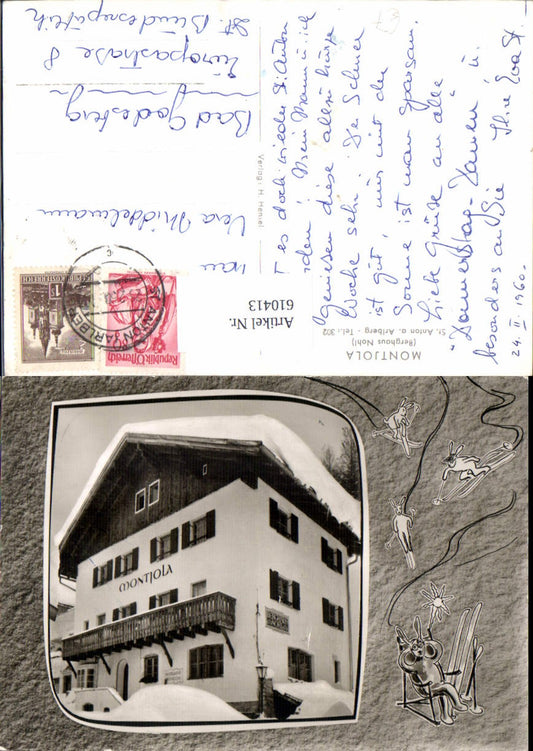 24. II. 1960.
... es doch wieder St. Anton
...den! Mein Mann u. ich
genießen diese allzu kurze
Woche sehr. Der Schnee
ist gut, nur mit der
Sonne ist man sparsam.
Liebe Grüße an alle
"Donnerstag-Damen" u.
besonders an Sie Ihre Eva St.
Vera Middelmann
Bad Godesberg
Europastraße 8
MONTJOLA
(Berghaus Nohl)
St. Anton a. Arlberg - Tel. 302
Verlag: H. Hensel
Artikel Nr.
610413
REPUBLIK ÖSTERREICH
Republik Österreich
ST. ANTON
MONTJOLA